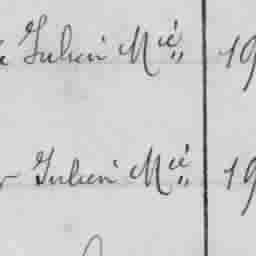 Julien Mić„ 19
Julien Mić„ 19